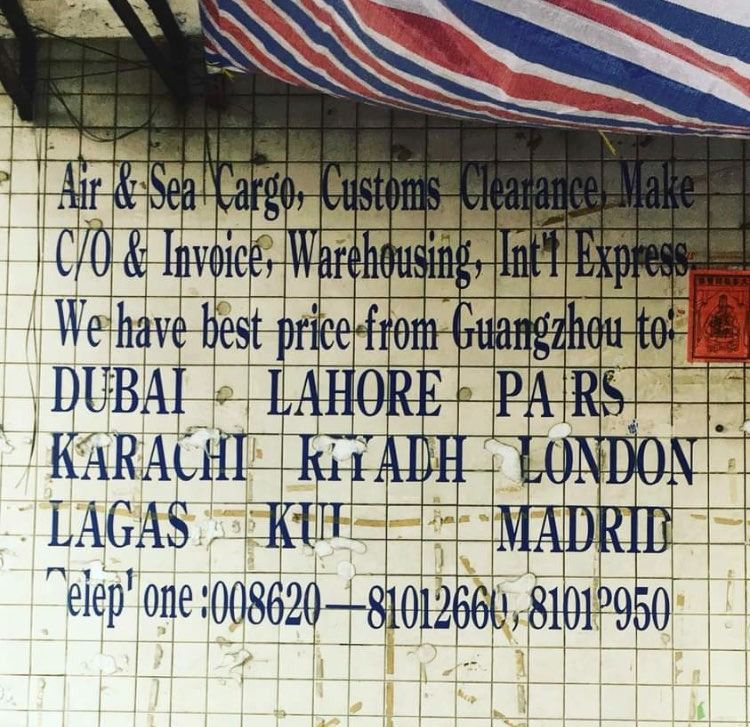 Air & Sea Cargo, Customs Clearance, Make
C/O & Invoice, Warehousing, Int'l Express.
We have best price from Guangzhou to:
DUBAI LAHORE PA RS
KARACHI RIYADH LONDON
LAGAS KUL MADRID
elep one:008620—81012660,